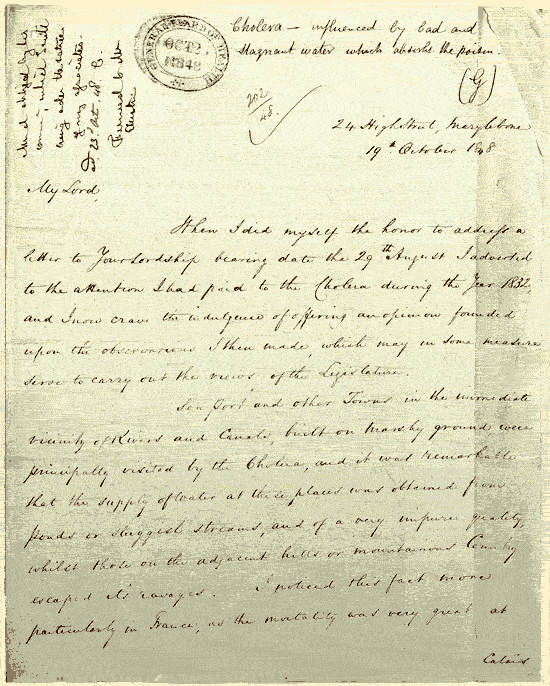 Cholera — influenced by bad and
Stagnant water which absorbs the poison.
(G)
GENERAL BOARD OF HEALTH
OCT 2
1848
202/48.
24 High Street, Marylebone
19th October 1848
My Lord,
When I did myself the honor to address a
letter to Your Lordship bearing date the 29th August I adverted
to the attention I had paid to the Cholera during the Year 1832,
and I now crave the indulgence of offering an opinion founded
upon the observations I then made, which may in some measure
serve to carry out the views of the Legislature.
Sea Port and other Towns in the immediate
vicinity of Rivers and Canals, built on Marshy ground were
principally visited by the Cholera, and it was remarkable
that the supply of Water at these places was obtained from
ponds or sluggish streams, and of a very impure quality,
whilst those on the adjacent hills or mountainous Country
escaped it's ravages. I noticed this fact more
particularly in France, as the mortality was very great at
Calais